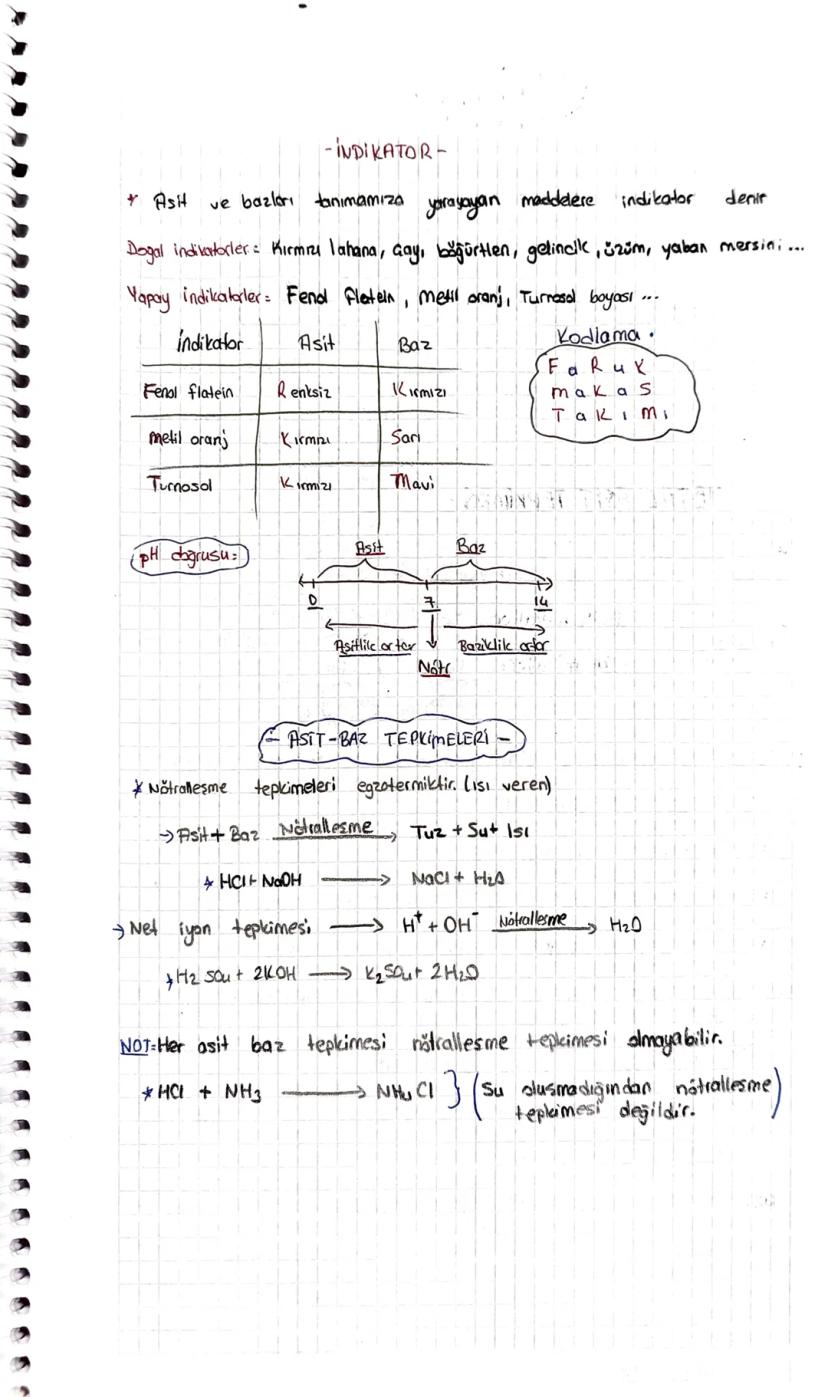 -İNDİKATOR-
* Asit ve bazları tanımamıza yarayayan maddelere indikator denir
Dogal indikatorler = Kırmızı lahana, çayı, böğürtlen, gelincik, üzüm, yaban mersini...
Yapay indikatorler = Fenol flatein, metil oranj, Turnosol boyası ...
indikator Asit Baz
Fenol flatein Renksiz Kırmızı
metil oranj Kırmızı Sarı
Turnosol Kırmızı Mavi
Kodlama.
FaRuK
maKaS
TaKıMı
pH dogrusu:
Asit Baz
0 7 14
Asitlik artar Baziklik artar
Nötr
- ASİT-BAZ TEPKİMELERİ -
* Nötralleşme tepkimeleri egzotermiktir. (ısı veren)
→ Asit + Baz Nötralleşme → Tuz + Su + Isı
* HCl + NaOH → NaCl + H₂O
→ Net iyon tepkimesi → H⁺ + OH⁻ Nötralleşme → H₂O
* H₂SO₄ + 2KOH → K₂SO₄ + 2H₂O
NOT= Her asit baz tepkimesi nötralleşme tepkimesi olmayabilir.
* HCl + NH₃ → NH₄Cl } (Su oluşmadığından nötralleşme
tepkimesi değildir.)